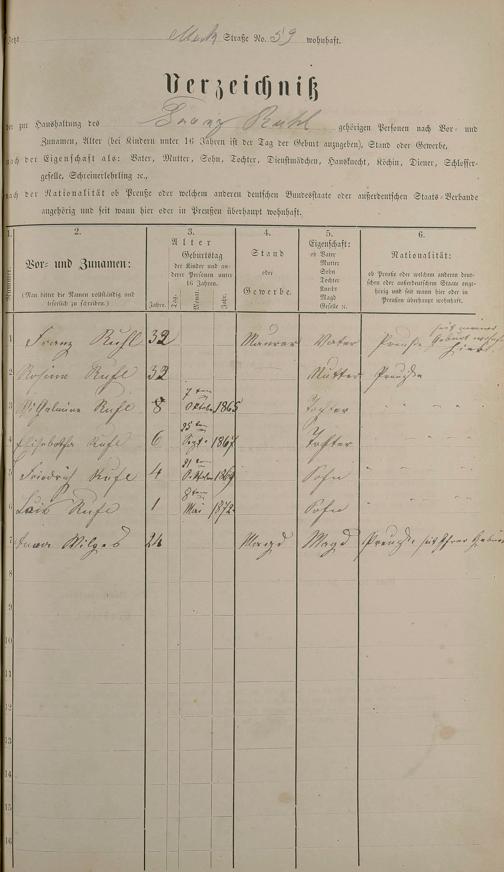 Jetzt Mark Straße No. 59 wohnhaft.
Verzeichniß
der zur Haushaltung des Franz Ruhl gehörigen Personen nach Vor- und
Zunamen, Alter (bei Kindern unter 16 Jahren ist der Tag der Geburt anzugeben), Stand oder Gewerbe,
nach der Eigenschaft als: Vater, Mutter, Sohn, Tochter, Dienstmädchen, Hausknecht, Köchin, Diener, Schlosser-
geselle, Schreinerlehrling ꝛc.,
nach der Nationalität ob Preuße oder welchem anderen deutschen Bundesstaate oder außerdeutschen Staats-Verbande
angehörig und seit wann hier oder in Preußen überhaupt wohnhaft.
1. 2. 3. 4. 5. 6.
Nummer.
Vor- und Zunamen:
(Man bittet die Namen vollständig und
leserlich zu schreiben.)
Alter
Geburtstag
der Kinder und an-
derer Personen unter
16 Jahren.
Jahre. Tag. Monat. Jahr.
Stand
oder
Gewerbe.
Eigenschaft:
ob Vater
Mutter
Sohn
Tochter
Knecht
Magd
Geselle ꝛc.
Nationalität:
ob Preuße oder welchem anderen deut-
schen oder außerdeutschen Staate ange-
hörig und seit wann hier oder in
Preußen überhaupt wohnhaft.
1 Franz Ruhl 32 Maurer Vater Preuße seit meiner Geburt hier
2 Rosina Ruhl 32 Mutter Preuße
3 Wilhelmine Ruhl 8 7ten Oktober 1865 Tochter " " "
4 Elisabetha Ruhl 6 25ten Sept. 1867 Tochter " " "
5 Friedrich Ruhl 4 21ten Oktober 1869 Sohn " " "
6 Luis Ruhl 1 8ten Mai 1872 Sohn " " "
7 Wilges 24 Magd Magd Preuße seit Ihrer Geburt
8
9
10
11
12
13
14
15
16